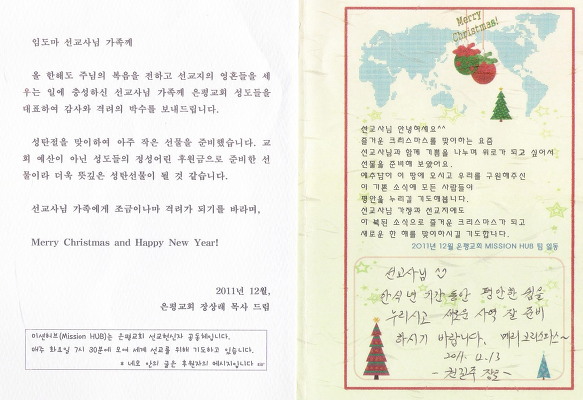 임도마 선교사님 가족께
올 한해도 주님의 복음을 전하고 선교지의 영혼들을 세
우는 일에 충성하신 선교사님 가족께 은평교회 성도들을
대표하여 감사와 격려의 박수를 보내드립니다.
성탄절을 맞이하여 아주 작은 선물을 준비했습니다. 교
회 예산이 아닌 성도들의 정성어린 후원금으로 준비한 선
물이라 더욱 뜻깊은 성탄선물이 될 것 같습니다.
선교사님 가족에게 조금이나마 격려가 되기를 바라며,
Merry Christmas and Happy New Year!
2011년 12월,
은평교회 장상래 목사 드림
미션허브(Mission HUB)는 은평교회 선교헌신자 공동체입니다.
매주 화요일 7시 30분에 모여 세계 선교를 위해 기도하고 있습니다.
* 네모 안의 글은 후원자의 메시지입니다
Merry
Christmas!
선교사님 안녕하세요^^
즐거운 크리스마스를 맞이하는 요즘
선교사님과 함께 기쁨을 나누며 위로가 되고 싶어서
선물을 준비해 보았어요.
예수님이 이 땅에 오시고 우리를 구원해주신
이 기쁜 소식에 모든 사람들이
평안을 누리길 기도해봅니다.
선교사님 가정과 선교지에도
이 복된 소식으로 즐거운 크리스마스가 되고
새로운 한 해를 맞이하시길 기도합니다.
2011년 12월 은평교회 MISSION HUB 팀 일동
선교사님
안식년 기간동안 평안한 쉼을
누리시고 새로운 사역 잘 준비
하시기 바랍니다. 메리크리스마스~
2011. 12. 13